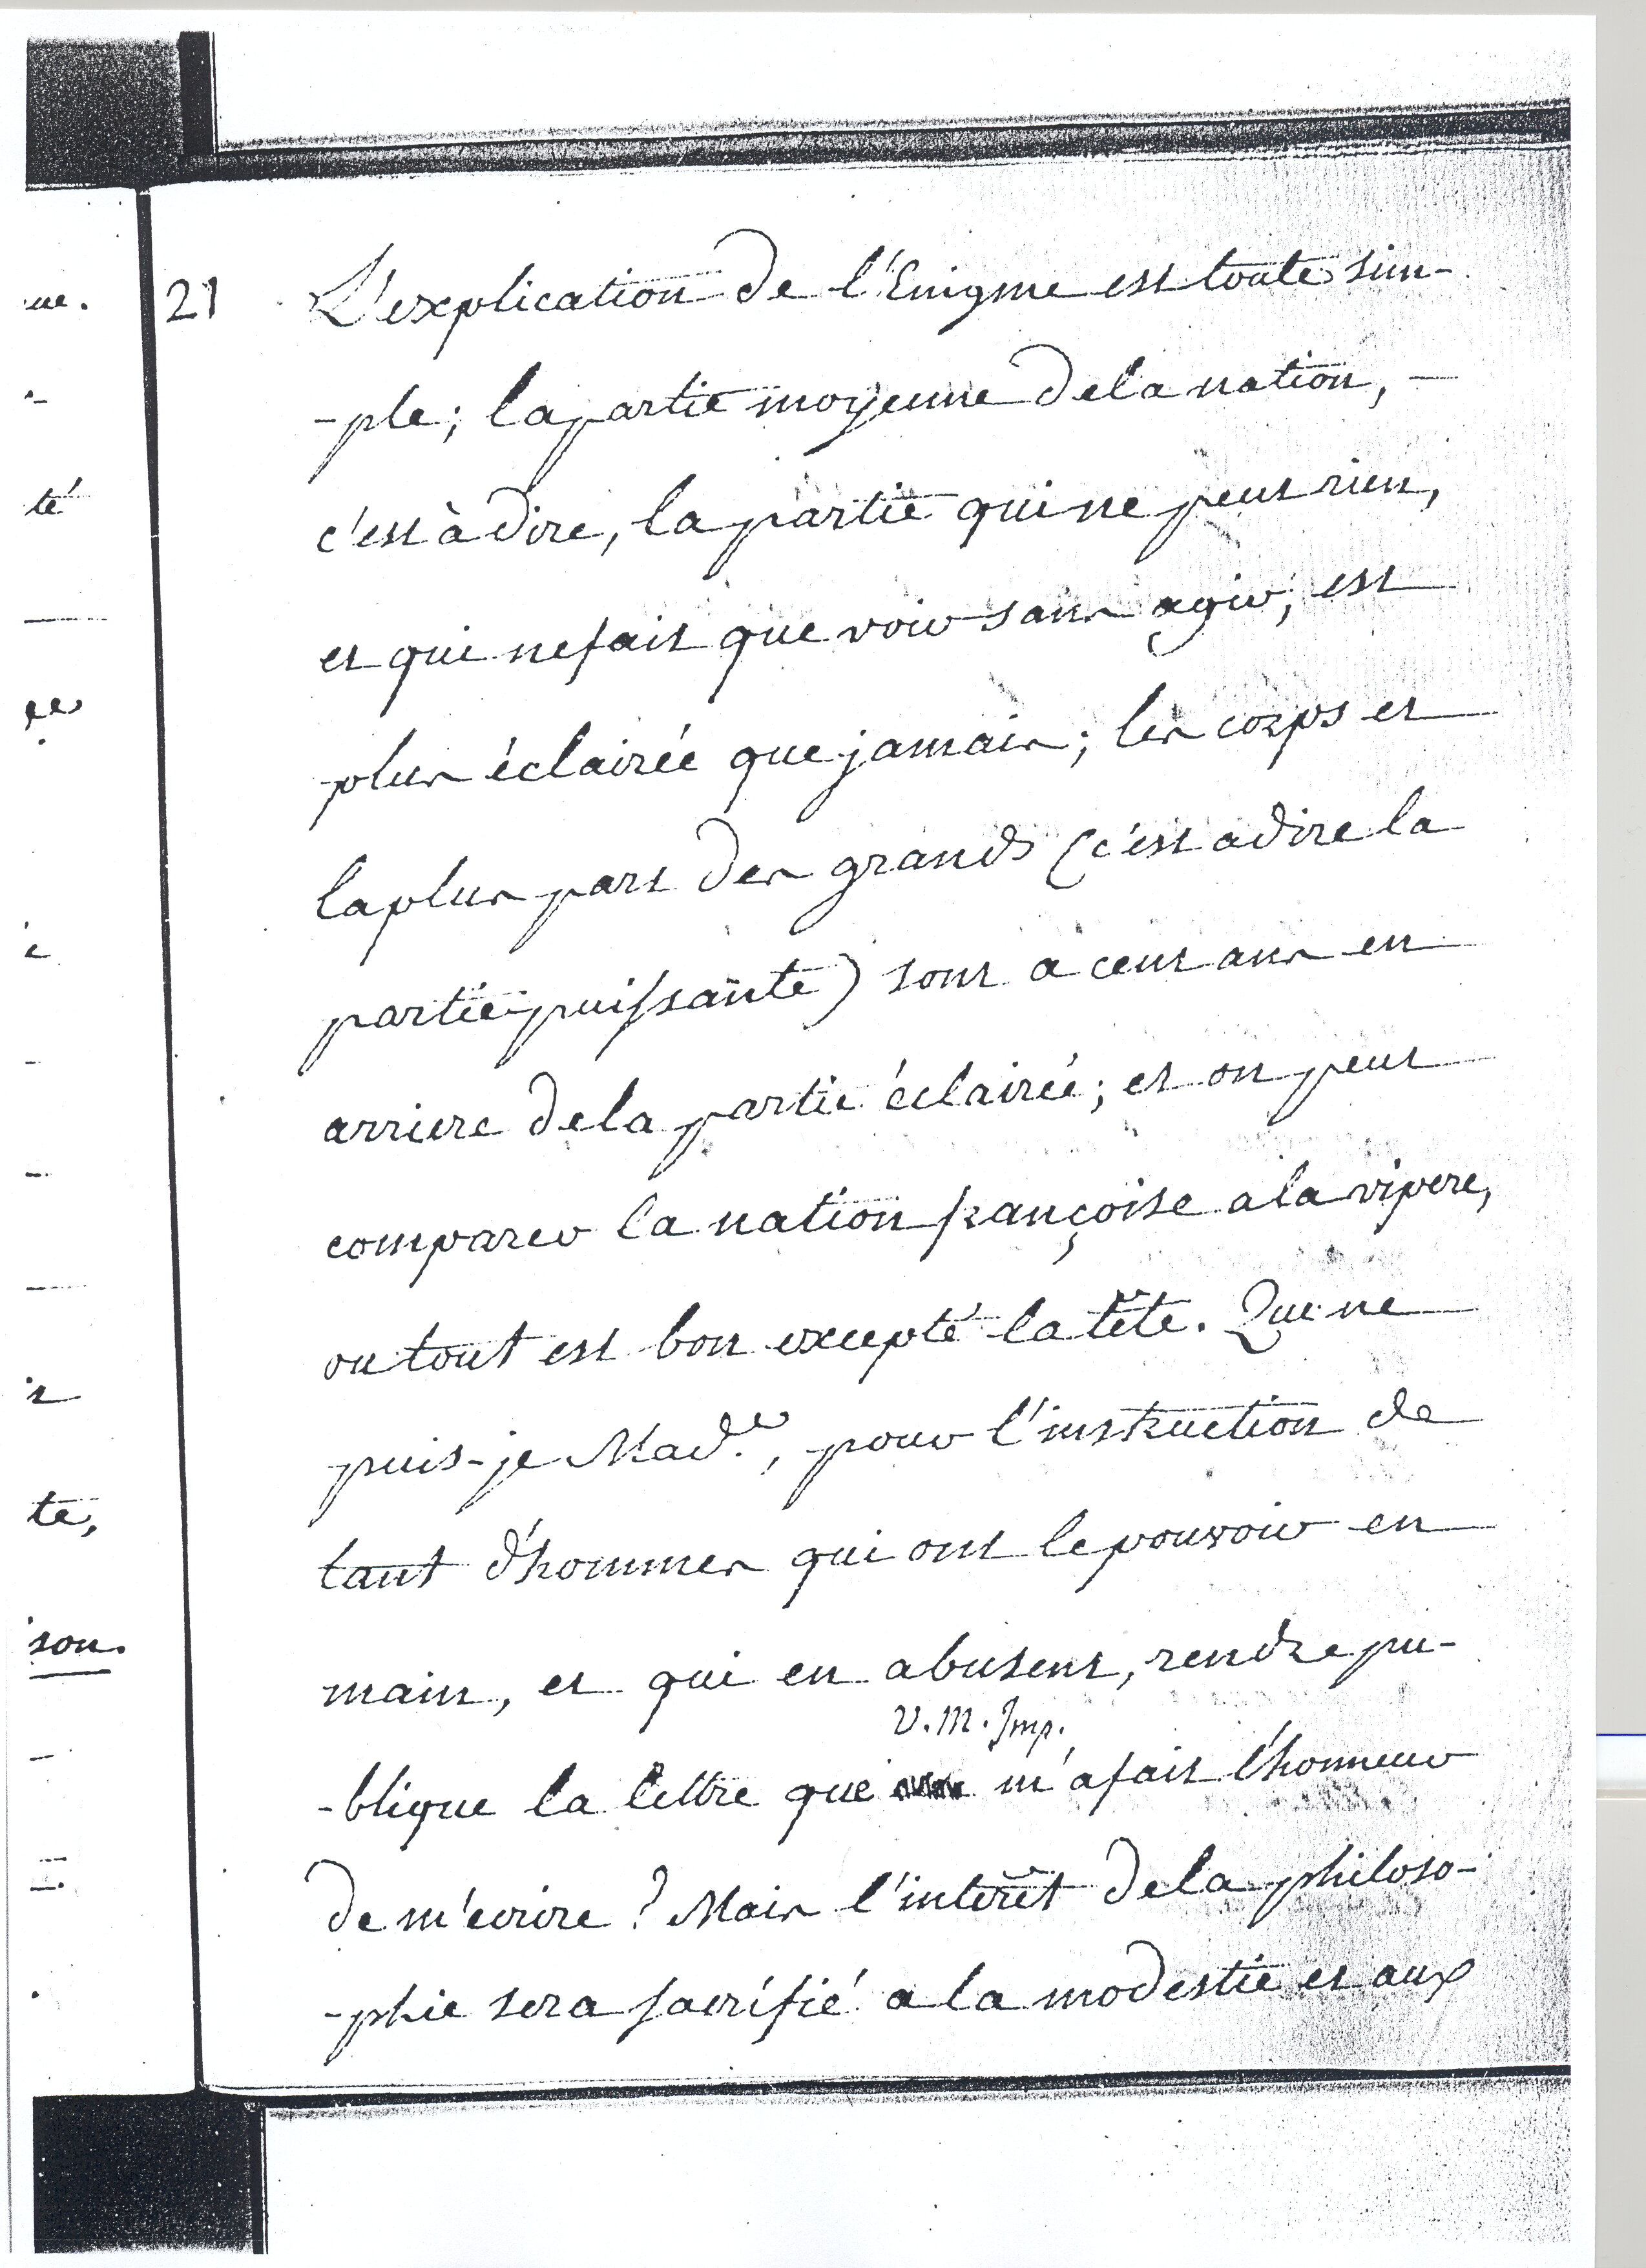 21 L'explication de l'Enigme est toute sim-
-ple; la partie moyenne de la nation, -
c'est à dire, la partie qui ne peut rien,
et qui ne fait que voir sans agir, est
plus éclairée que jamais; les corps et
la plus part des grands (c'est a dire la
partie puissante) sont a cent ans en
arriere de la partie éclairée; et on peut
comparer la nation françoise a la vipere,
ou tout est bon excepté la tête. Que ne
puis-je Mad.e, pour l'instruction de
tant d'hommes qui ont le pouvoir en
main, et qui en abusent, rendre pu-
V. M. Imp.
-blique la lettre que m'a fait l'honneur
de m'ecrire? Mais l'interêt de la philoso-
-phie sera sacrifié a la modestie et aux
ue.
té
te,
son.